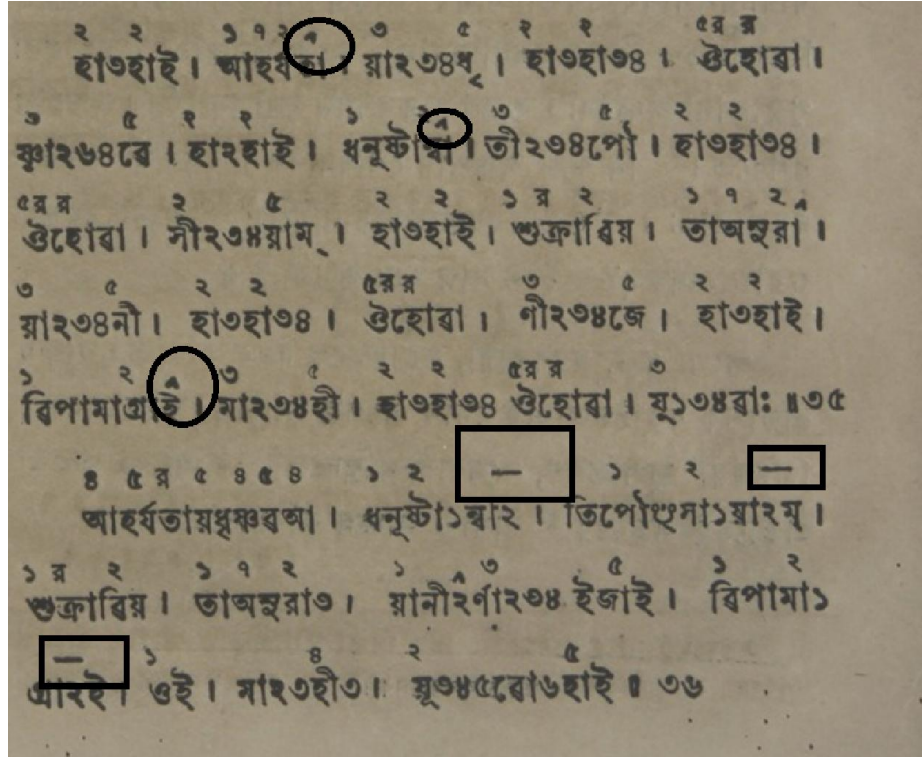 ২ ২ ১ ৭ ২ ^ ৩ ৫ ২ ২ ৫র র
হা৩হাই । আহর্যতা । য়া২৩৪ধৃ । হা৩হা৩৪ । ঔহোৱা ।
৩ ৫ ২ ২ ১ ২^ ৩ ৫ ২ ২
ষ্ণা২৬৪ৱে । হা২হাই । ধনূষ্টান্বা । তী২৩৪পৌ । হা৩হা৩৪ ।
৫র র ২ ৫ ২ ২ ১ র ২ ১ ৭ ২^
ঔহোৱা । সী২৩৪য়াম্ । হা৩হাই । শুক্রাৱিয় । তাঅসুরা ।
৩ ৫ ২ ২ ৫র র ৩ ৫ ২ ২
য়া২৩৪নী । হা৩হা৩৪ । ঔহোৱা । ণী২৩৪জে । হা৩হাই ।
১ ২ ^ ৩ ৫ ২ ২ ৫র র ৩
ৱিপামাগ্রাই । মা২৩৪হী । হা৩হা৩৪ ঔহোৱা । যূ১৩৪ৱাঃ ॥৩৫
৪ ৫ র ৫ ৪ ৫ ৪ ১ ২ — ১ ২ —
আহর্যতায়ধৃষ্ণৱআ । ধনূষ্টা১ন্বা২ । তিপৌংসা১য়া২ম্ ।
১ র ২ ১ ৭ ২ ১ ^ ৩ ৫ ১ ২
শুক্রাৱিয় । তাঅসুরা৩ । য়ানী২র্ণা২৩৪ ইজাই । ৱিপামা১
— ১ ৪ ২ ৫
গ্রা২ই । ওই । মা২৩হী৩ । যূ৩৪৫ৱো৬হাই ॥ ৩৬